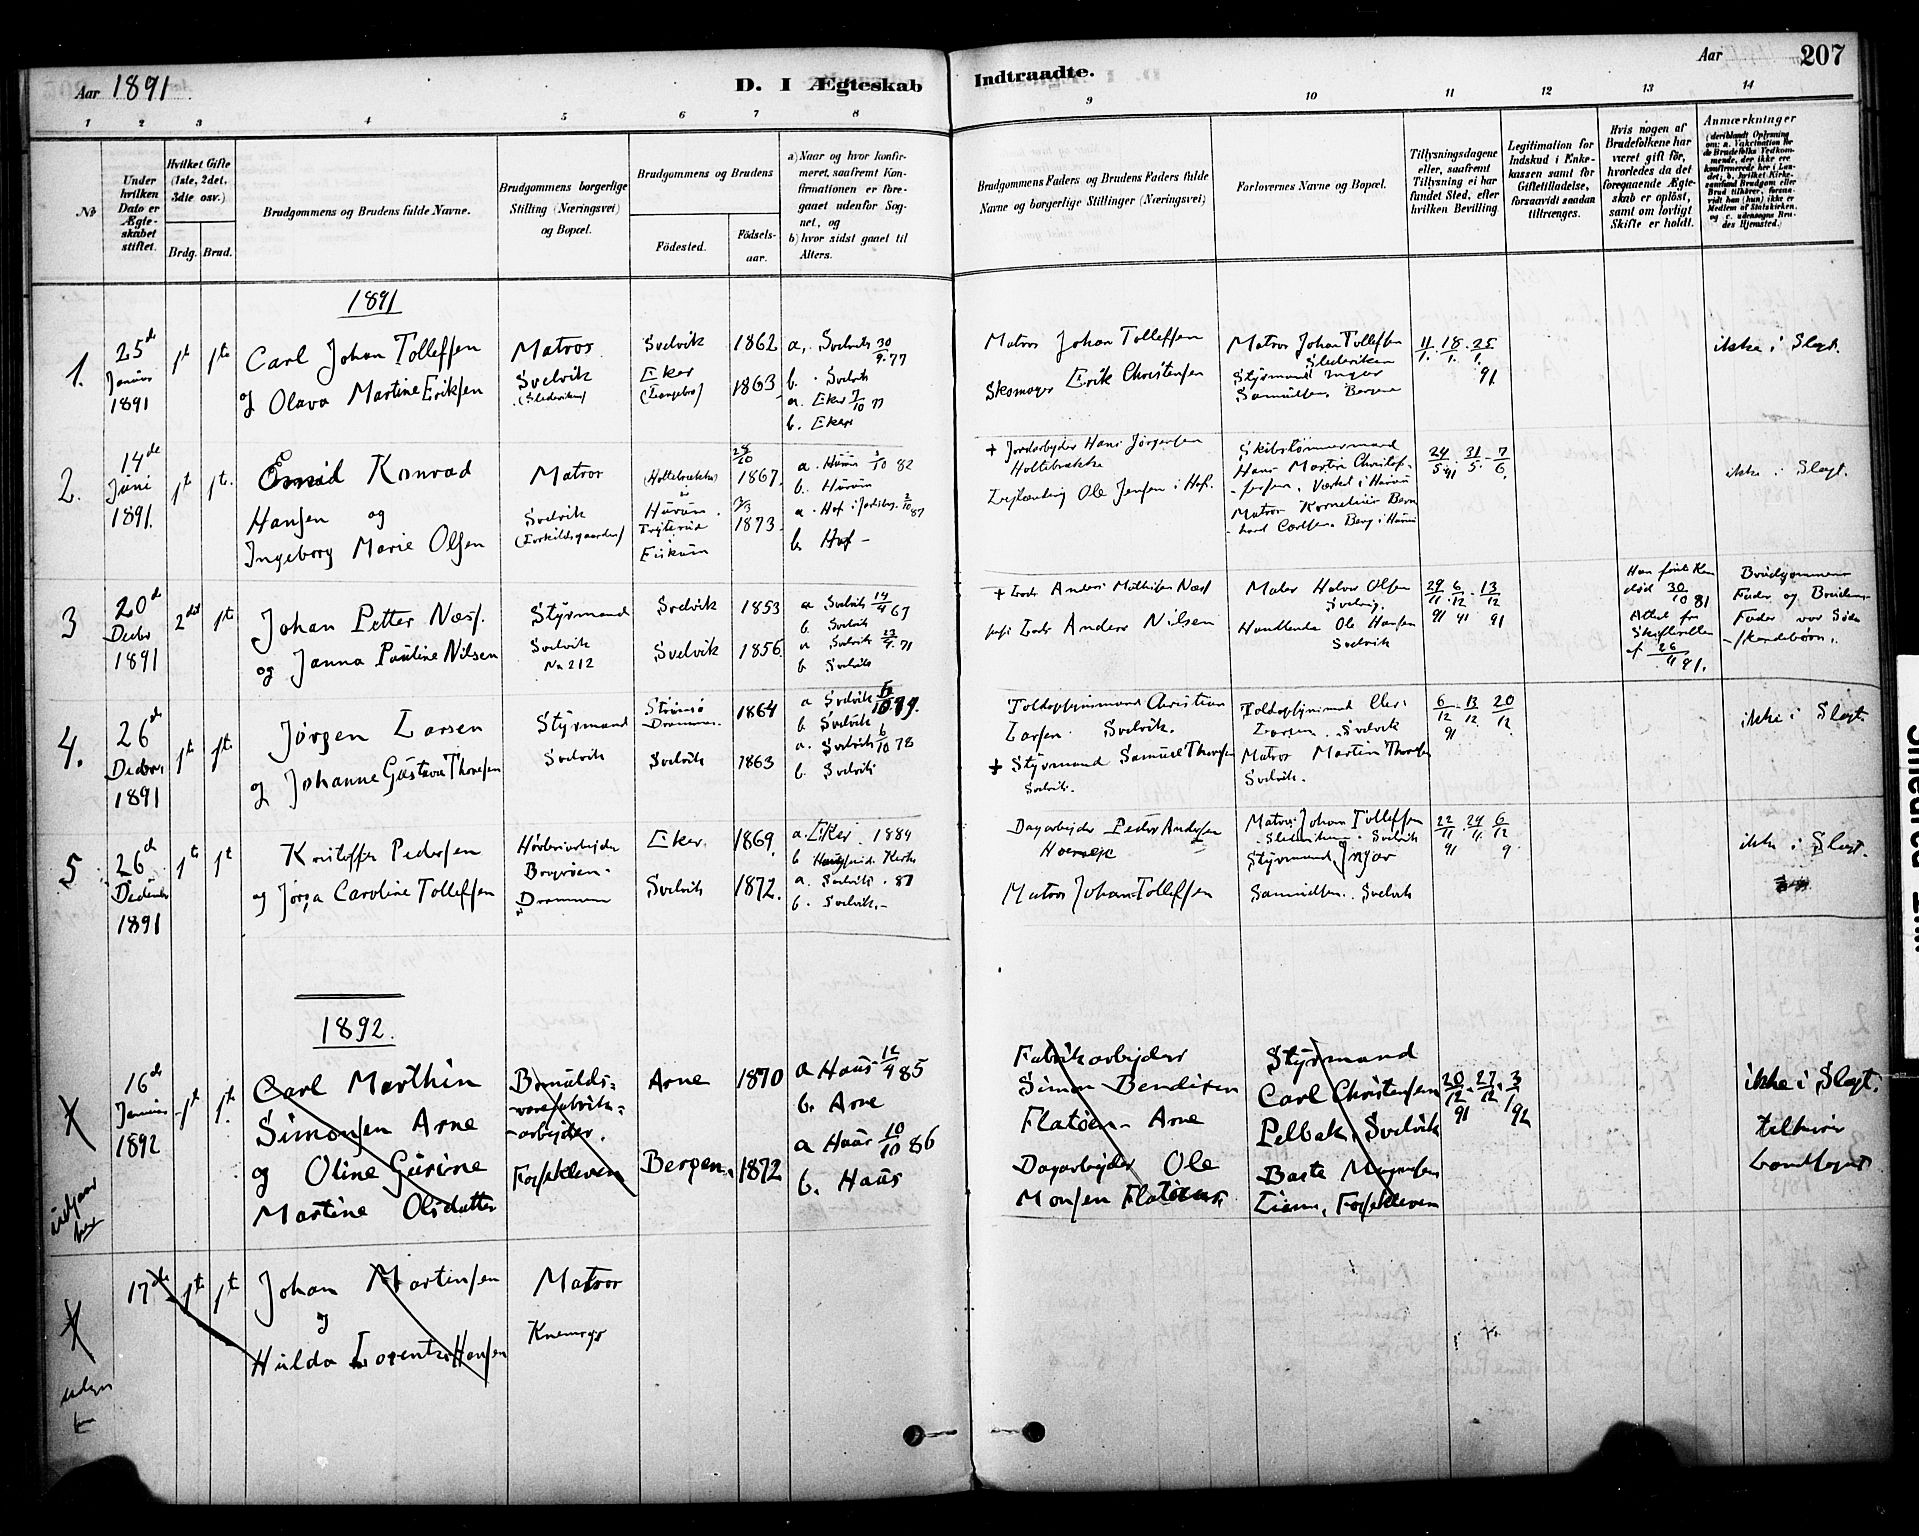 Aar 1891
D. I Ægteskab
Indtraadte.
Aar 207
1 2 3 4 5 6 7 8 9 10 11 12 13 14
No
Under hvilken Dato er Ægteskabet stiftet.
Hvilket Gifte (1ste, 2det, 3dte osv.)
Brdg. Brud.
Brudgommens og Brudens fulde Navne.
Brudgommens borgerlige Stilling (Næringsvei) og Bopæl.
Brudgommens og Brudens
Fødested.
Fødselsaar.
a) Naar og hvor konfirmeret, saafremt Konfirmationen er foregaaet udenfor Sognet, og
b) hvor sidst gaaet til Alters.
Brudgommens Faders og Brudens Faders fulde Navne og borgerlige Stillinger (Næringsvei)
Forlovernes Navne og Bopæl.
Tillysningsdagene eller, saafremt Tillysning ei har fundet Sted, efter hvilken Bevilling
Legitimation for Indskud i Enkekassen samt for Giftetilladelse, forsaavidt saadan tiltrænges.
Hvis nogen af Brudefolkene har været gift før, hvorledes da det foregaaende Ægteskab er opløst, samt om lovligt Skifte er holdt.
Anmærkninger
1891
1. 25de Januar 1891 1st 1ste
Carl Johan Tolleffen
og Olava Martine Eriksen
Matros Svelvik
Svelvik 1862
Eker 1863
a. Svelvik 30/9 77
b. Svelvik
a. Eker 7/10 77
b. Eker
Matros Johan Tolleffen
Skomager Erik Christensen
Matros Johan Tolleffen
Styrmand Ingar Samuelsen, Bergene
11/1 18/1 25/1 91
ikke i Slegt.
2. 14de Juni 1891 1st 1ste
Konrad Hansen og
Ingeborg Marie Olsen
Matros Svelvik
Hurum 1867
1873
a. Hurum 82
b. Hurum
a. Hof i Jarlsbg. 87
b. Hof
+ Jordarbejder Hans Jørgensen
Ole Jensen i Hof.
Skibstømmermand
Hans Martin Christoffersen, Værket i Hurum
Matros Kornelius Bernhard Carlsen, Berg i Hurum
24/5 91 31/5 7/6
ikke i Slegt.
3 20de Decbr 1891 2det 1ste
Johan Petter Næss.
og Janna Pauline Nilsen
Styrmand
Svelvik No 212
Svelvik 1853
Svelvik 1856
a Svelvik 67
b. Svelvik
a Svelvik 71
b Svelvik
+ Lods Anders Mathisen Næss
Lods Anders Nilsen
Maler Halvor Olsen Svelvig.
Handlende Ole Hansen Svelvik
29/11 91 6/12 91 13/12 91
død 30/10 81
Attest fra Skifteretten af
Brudgommens Fader og Brudens Fader var Sødskendebørn.
4. 26de Decbr 1891 1st 1ste
Jørgen Larsen
og Johanne Gustava Thoresen
Styrmand
Svelvik
Strømsø Drammen 1864
Svelvik 1863
a Svelvik 79.
b Svelvik
a. Svelvik 6/10 78
b. Svelvik
Toldopsynsmand Christian Larsen Svelvik.
+ Styrmand Samuel Thoresen Svelvik.
Larsen Svelvik
Matros Martin Thoresen Svelvik.
6/12 91 13/12 20/12
ikke i Slegt.
5 26de 1891 1ste 1st
Kristoffer Pedersen
og Jørga Caroline Tolleffen
Drammen
Eker 1869
Svelvik 1872.
a. Eker 1884
a. Svelvik 87
b. Svelvik
Dagarbejder Peder Andersen
Matros Johan Tolleffen
Matros Johan Tolleffen Svelvik
Styrmand Ingar Samuelsen. Svelvik
22/11 91 24/11 6/12
ikke i Slegt.
1892.
16de Januar 1892 1st 1ste
Carl Marthin Simonsen Arne
og Oline Gurine Martine Olsdatter
Bomuldsvarefabrikarbejder.
Fossekleven
Arne 1870
Bergen 1872
a Haus 12/9 85
b. Arne
a Haus 10/10 86
b. Haus
Fabrikarbejder
Simon Bendixen
Flatøen Arne
Dagarbejder Ole
Monsen Flatøen
Styrmand
Carl Christensen
Svelvik
Fossekleven
20/12 91 27/12 3/1 92
ikke i Slegt.
udgaar
17de 1ste 1st
Johan Martinsen
og
Hulda Lorentze Hansen
Matros